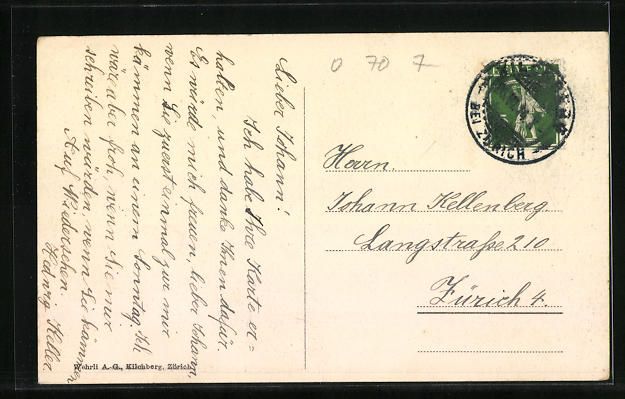 Lieber Johann!
Ich habe Ihre Karte er=
halten, und danke Ihnen dafür.
Es würde mich freuen, lieber Johann,
wenn Sie zuerst einmal zur mir
kämmen an einem Sonntag. Ich
wäre aber froh, wenn Sie mir
schreiben würden, wenn Sie kämmen
Auf Wiedersehen.
Hedwig Keller.
0 70 7
HELVETIA
BEI ZÜRICH
Herrn.
Johann Kellenberg
Langstraße 210
Zürich 4.
Wehrli A.-G., Kilchberg, Zürich